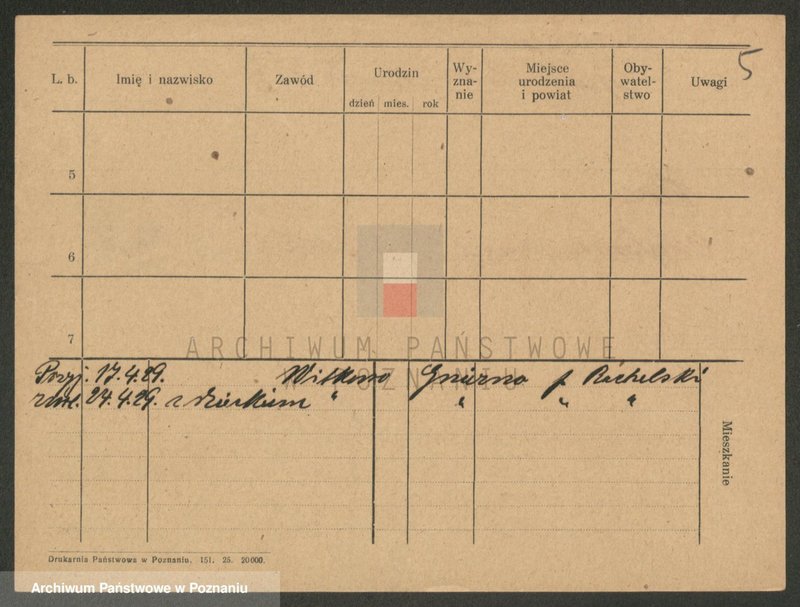 5
L. b. Imię i nazwisko Zawód Urodzin dzień mies. rok Wy-zna-nie Miejsce urodzenia i powiat Oby-watel-stwo Uwagi
5
6
7
ARCHIWUM PAŃSTWOWE
W POZNANIU
Przyj. 17.4.29. Witkowo p. Richelski
24.4.29. z dzieckiem " " " "
Mieszkanie
Drukarnia Państwowa w Poznaniu. 151. 25. 20000.
Archiwum Państwowe w Poznaniu